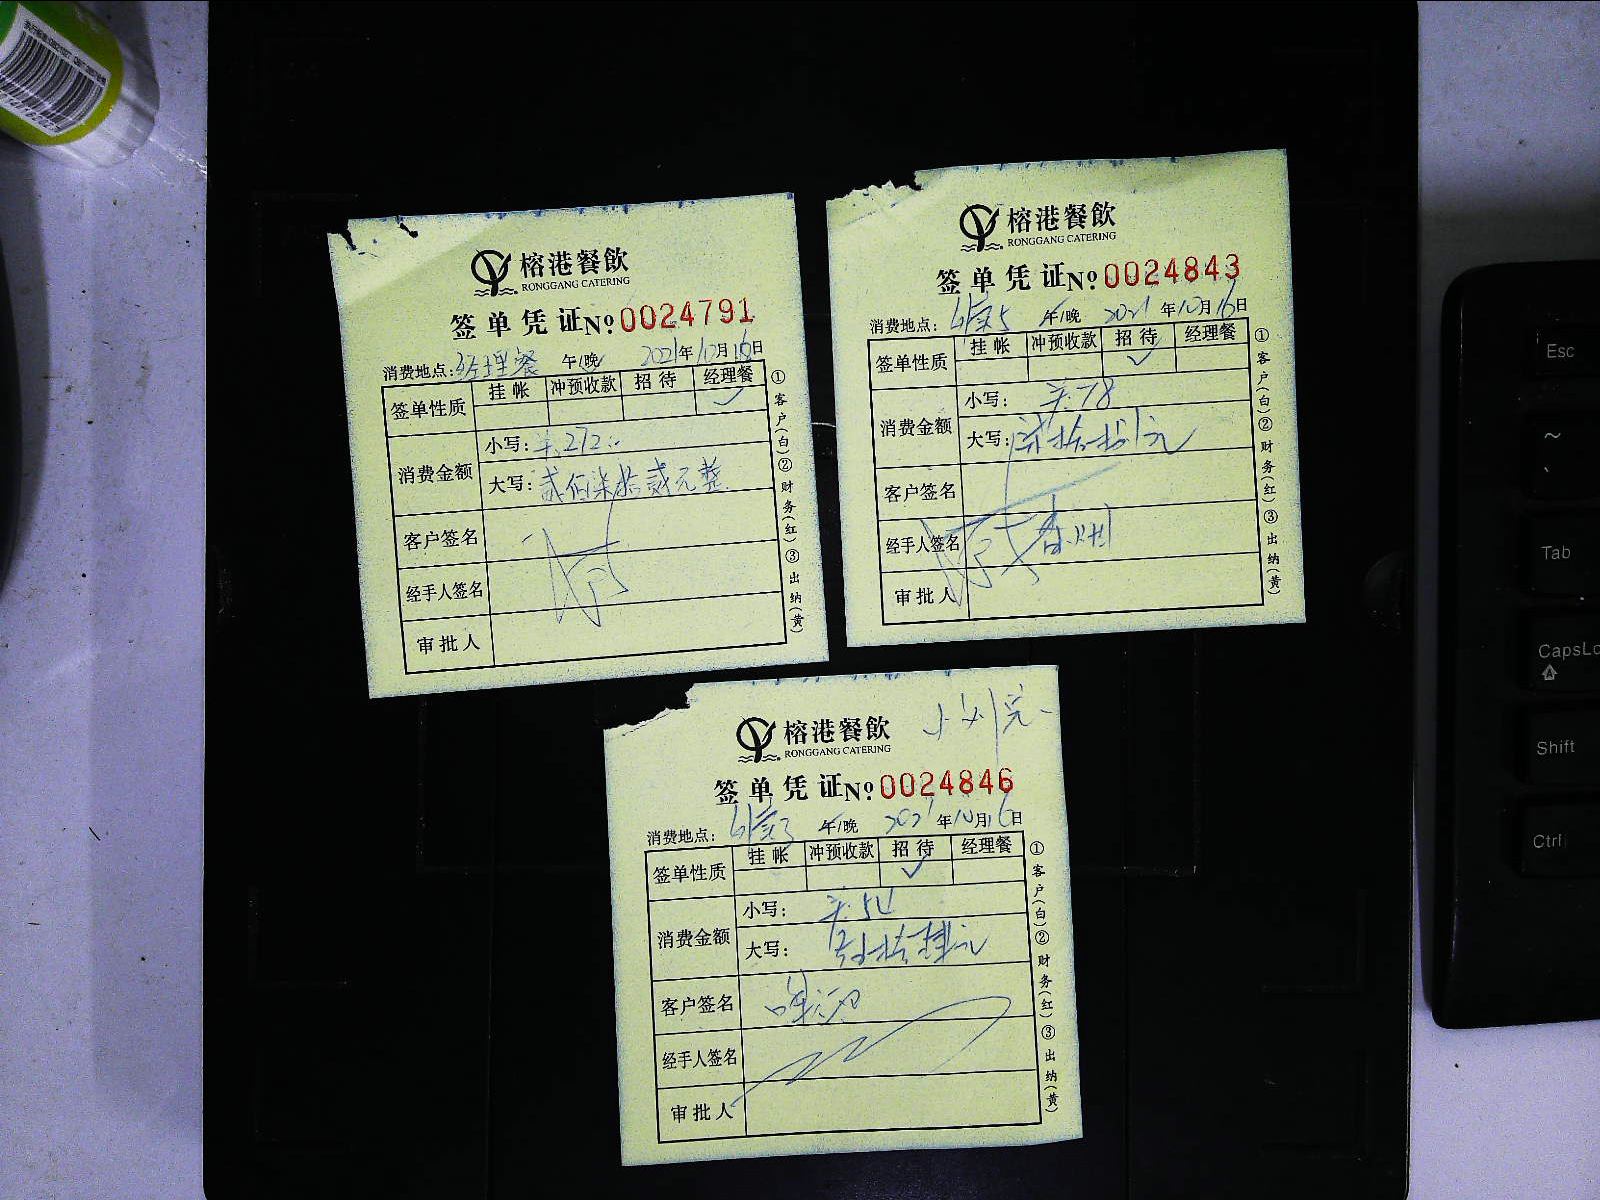 榕港餐飲
RONGGANG CATERING
签单凭证№0024791
消费地点：经理餐 午/晚 2021年10月16日
签单性质 挂帐 冲预收款 招待 经理餐
✓
消费金额
小写：¥:272.
大写：贰佰柒拾贰元整
客户签名
经手人签名
审批人
①客户(白)②财务(红)③出纳(黄)
榕港餐飲
RONGGANG CATERING
签单凭证№0024843
消费地点： 午/晚 2021年10月16日
签单性质 挂帐 冲预收款 招待 经理餐
✓
消费金额
小写：¥:78
大写：
客户签名
经手人签名
审批人
①客户(白)②财务(红)③出纳(黄)
榕港餐飲
RONGGANG CATERING
签单凭证№0024846
消费地点： 午/晚 2021年10月16日
签单性质 挂帐 冲预收款 招待 经理餐
✓
消费金额
小写：¥:54
大写：
客户签名
经手人签名
审批人
①客户(白)②财务(红)③出纳(黄)
Esc
~
`
Tab
CapsLo
Shift
Ctrl